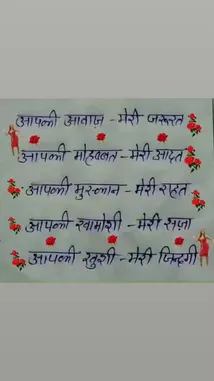 आपकी आवाज़ - मेरी जरूरत
आपकी मोहब्बत - मेरी आदत
आपकी मुस्कान - मेरी राहत
आपकी खामोशी - मेरी सज़ा
आपकी खुशी - मेरी जिन्दगी